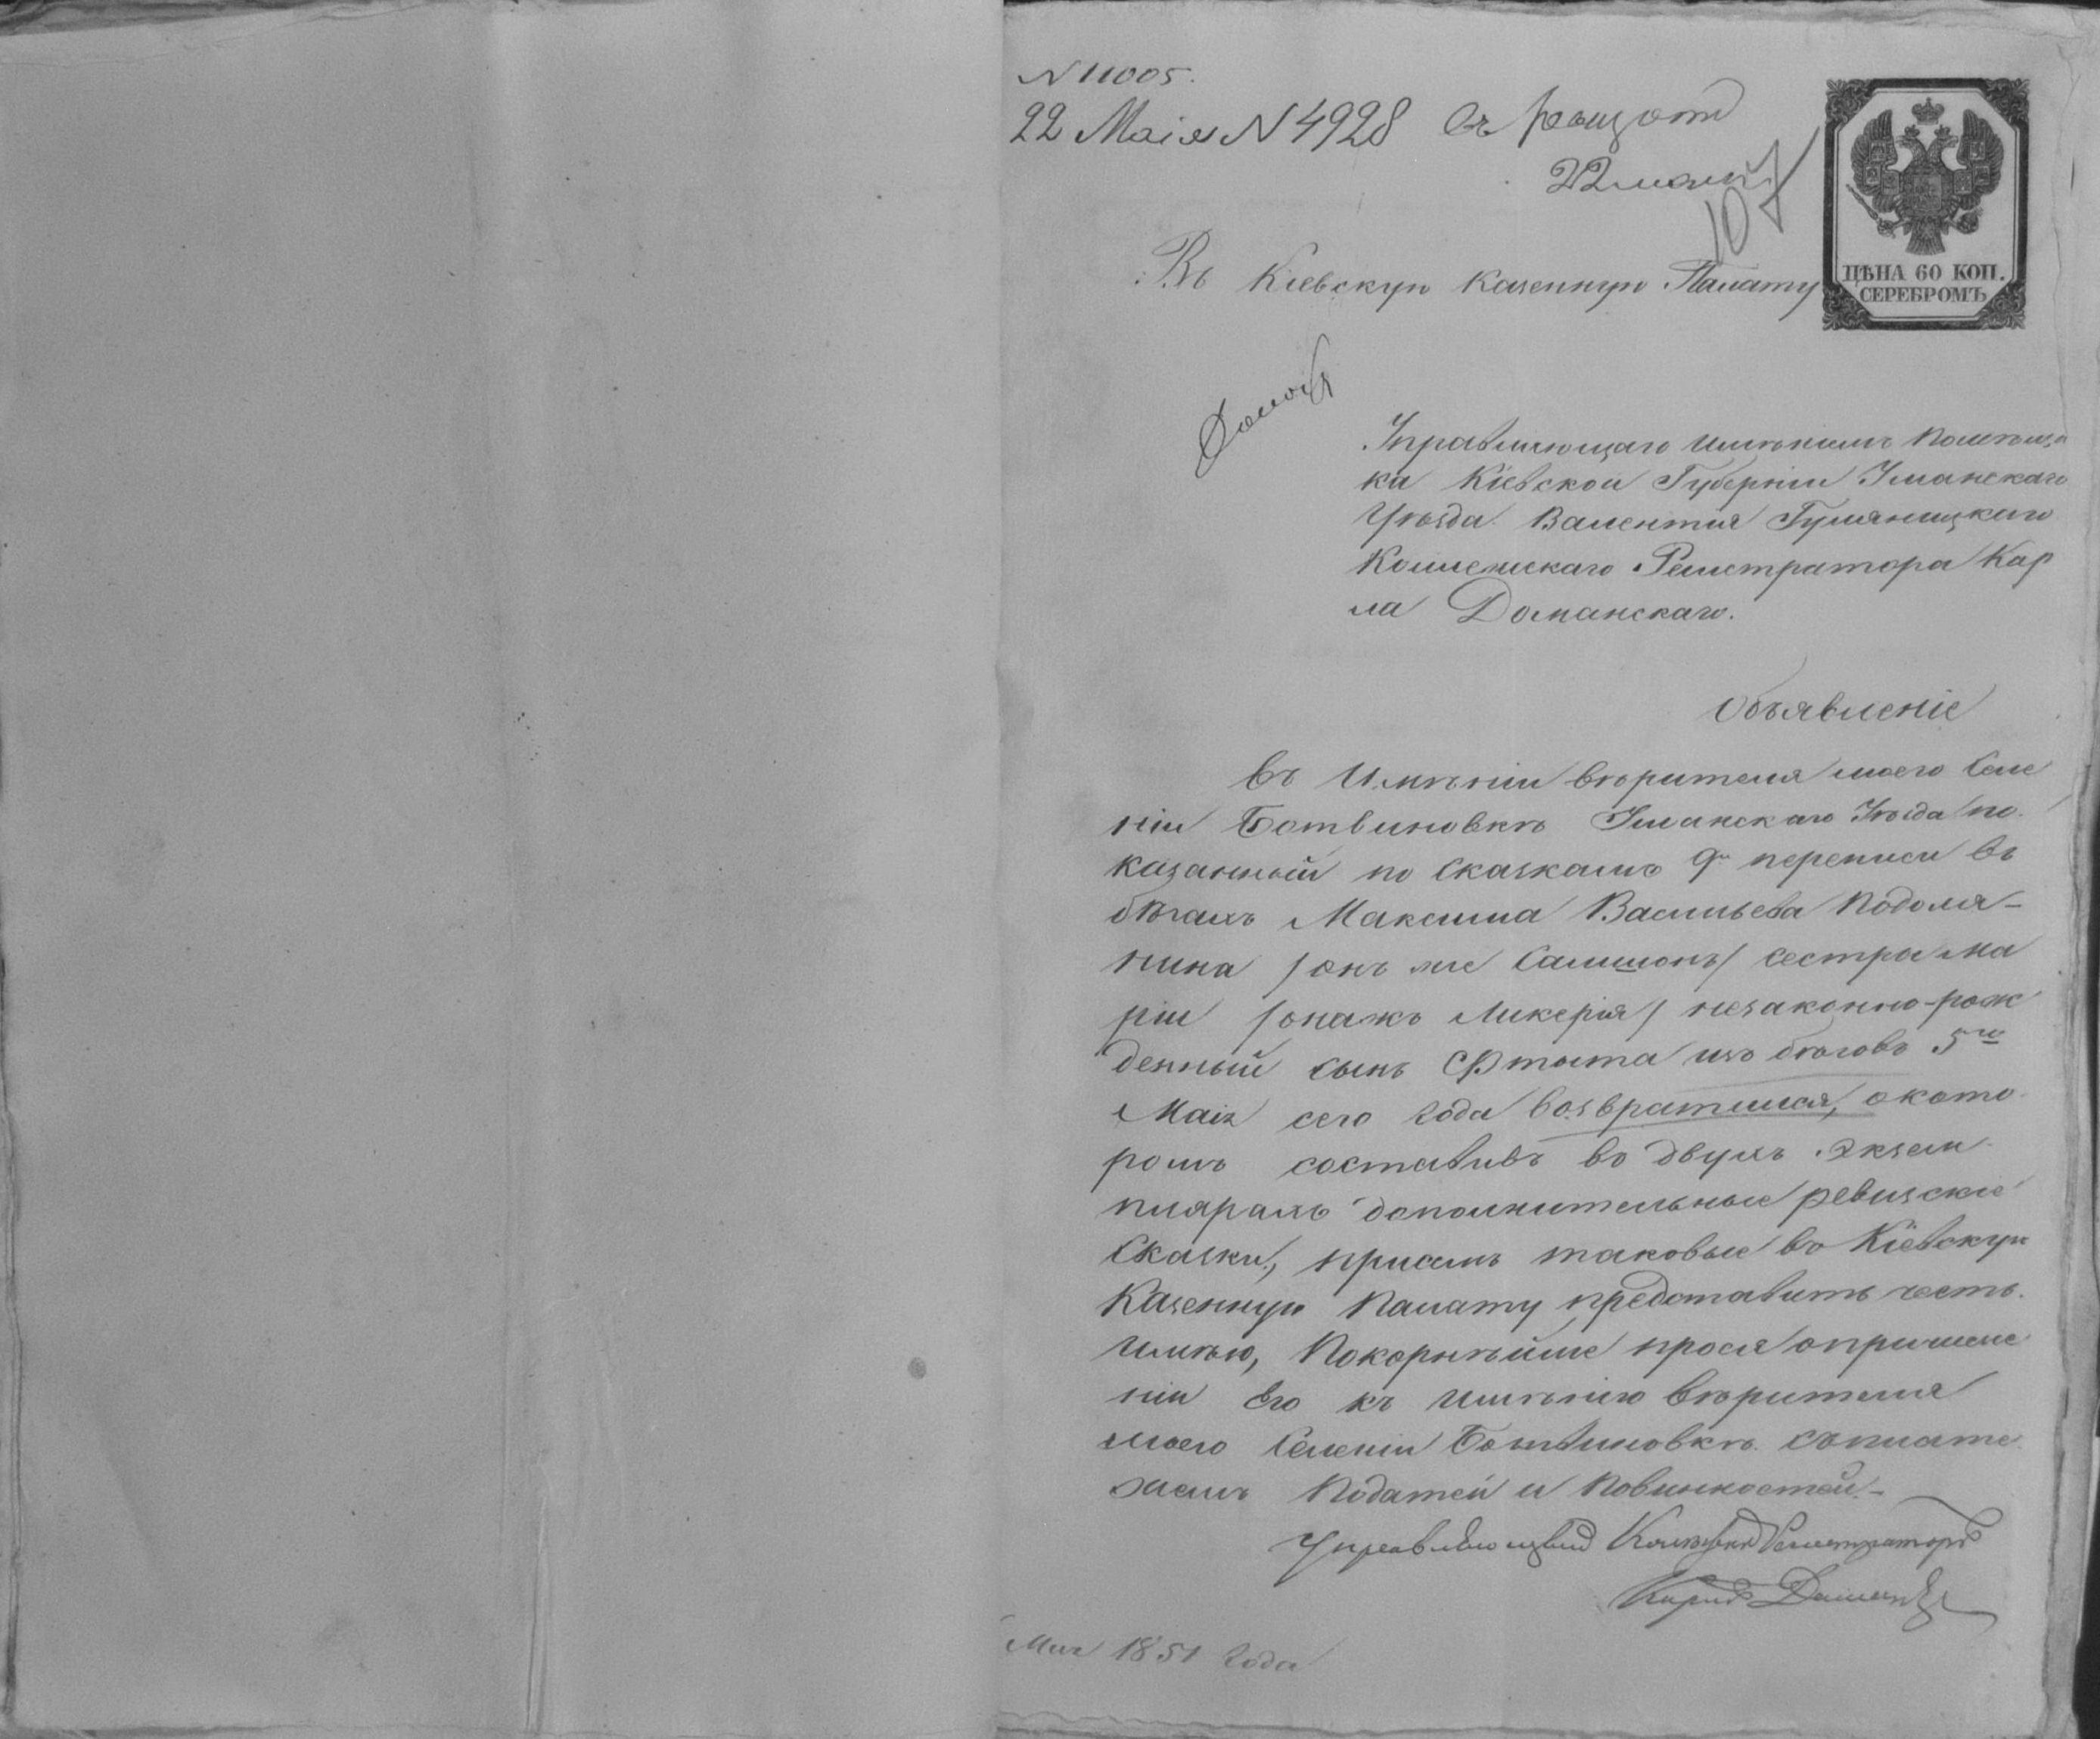 N 11005.
22 Маія N 4928
22 мая
107
ЦѢНА 60 КОП.
СЕРЕБРОМЪ
Въ Кіевскую Казенную Палату
Управляющаго имѣніемъ Помѣщи
ка Кіевской Губерніи Уманскаго
Уѣзда Валентія Гуляницкаго
Коллежскаго Регистратора Кар
ла Доманскаго.
Объявленіе
Въ Имѣніи вѣрителя моего Селе
ніи Ботвиновкѣ Уманскаго Уѣзда по
казанный по Сказкамъ 9й переписи въ
бѣгахъ Максима Васильева Подоля-
нина /онъ же Салимонъ/ сестры Ма
ріи /онажъ Ликерія/ незаконно-рож
денный сынъ из бѣговъ 5го
Маія сего Года возвратился, о кото
ромъ составивъ во двухъ экзем
плярахъ дополнительные ревизские
Сказки, присемъ таковые во Кіевскую
Казенную Палату представить честь
имѣю, Покорнѣйше прося о причисле
ніи его къ имѣнію вѣрителя
моего Селеніи Ботвиновкѣ съплате
жемъ Податей и Повинностей.-
Управляющий Колежский Регистраторъ
Карлъ Доманский
Мая 1851 Года